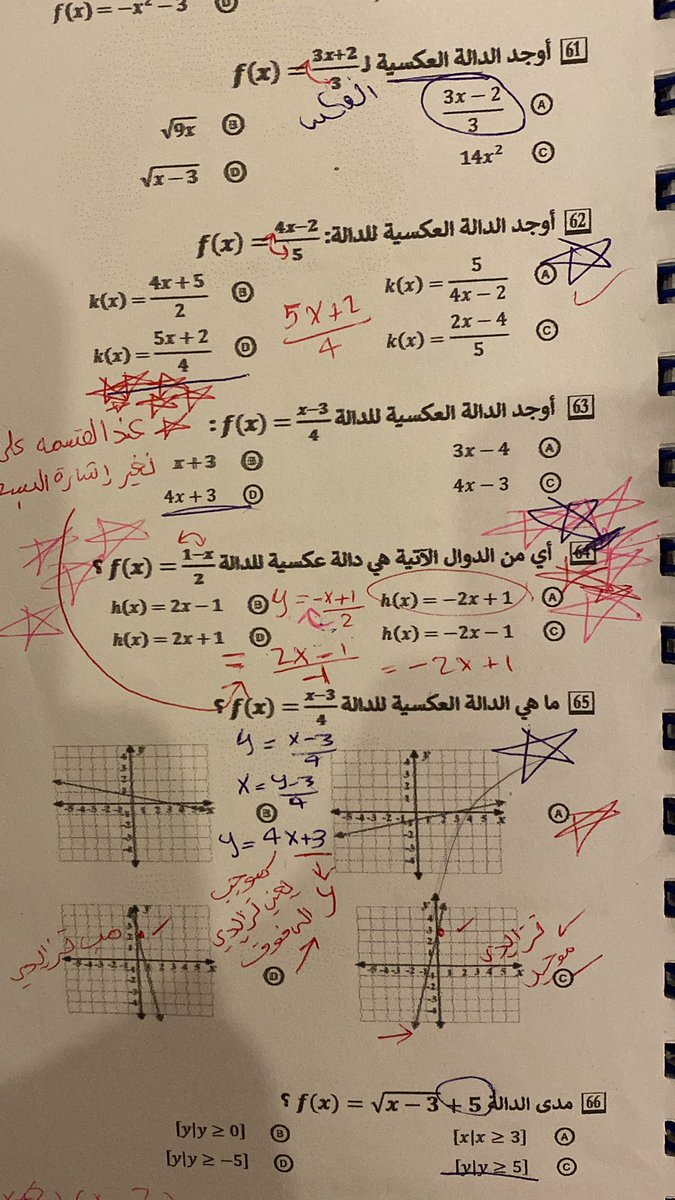 f(x) = −x² − 3 D
61 أوجد الدالة العكسية لـ f(x) = 3x+2/3
العكس
A 3x − 2/3
B √9x
C 14x²
D √x − 3
62 أوجد الدالة العكسية للدالة: f(x) = 4x−2/5
A k(x) = 5/4x − 2
B k(x) = 4x + 5/2
C k(x) = 2x − 4/5
D k(x) = 5x + 2/4
5x+2/4
63 أوجد الدالة العكسية للدالة f(x) = x−3/4 :
A 3x − 4
B x + 3
C 4x − 3
D 4x + 3
عند القسمه على
نغير إشارة البسط
64 أي من الدوال الآتية هي دالة عكسية للدالة f(x) = 1−x/2 ؟
A h(x) = −2x + 1
B h(x) = 2x − 1
C h(x) = −2x − 1
D h(x) = 2x + 1
y = −x+1/2
= 2x−1/−1 = −2x+1
65 ما هي الدالة العكسية للدالة f(x) = x−3/4 ؟
y = x−3/4
x = y−3/4
y = 4x+3
A
B
C
D
موجب
يعني تزايدي
y
تزايدي
موجب
66 مدى الدالة f(x) = √x − 3 + 5 ؟
A [x|x ≥ 3]
B [y|y ≥ 0]
C [y|y ≥ 5]
D [y|y ≥ −5]